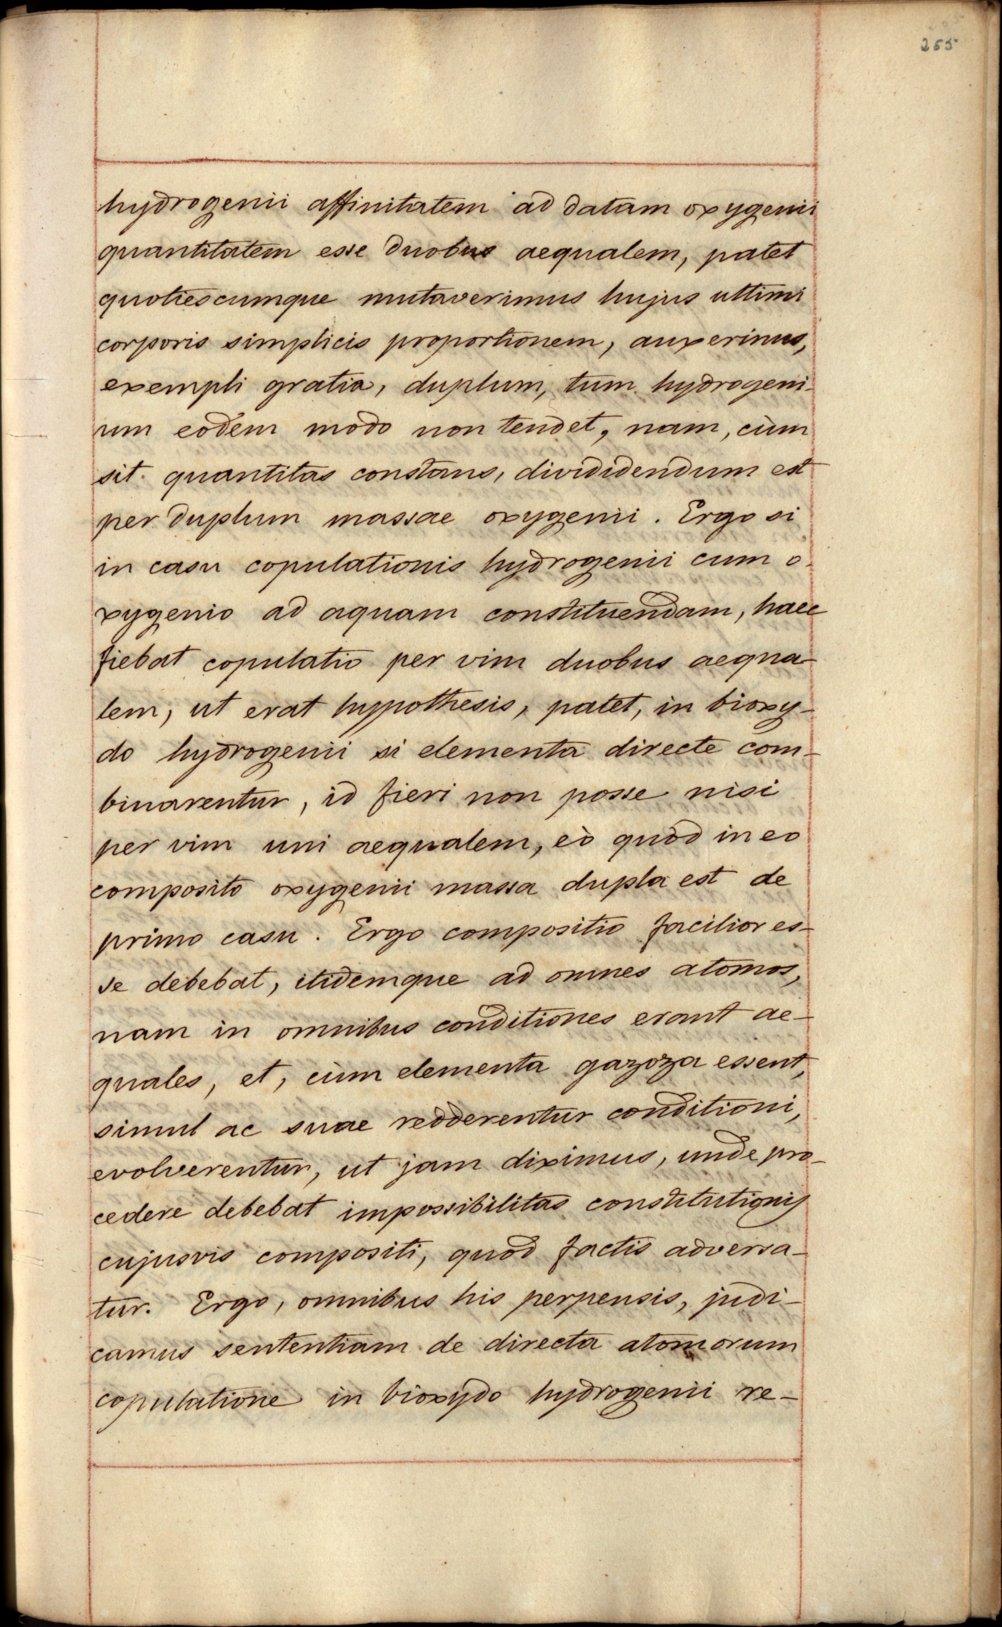 265
hydrogenii affinitatem ad datam oxygenii
quantitatem esse duobus aequalem, patet
quotiescumque mutaverimus hujus ultimi
corporis simplicis proportionem, auxerimus,
exempli gratia, duplum, tum hydrogeni-
um eodem modo non tendet, nam, cùm
sit quantitas constans, divididendum est
per duplum massae oxygenii. Ergo si
in casu copulationis hydrogenii cum o-
xygenio ad aquam constituendam, haec
fiebat copulatio per vim duobus aequa-
lem, ut erat hyppothesis, patet, in bioxy-
do hydrogenii si elementa directe com-
binarentur, id fieri non posse nisi
per vim uni aequalem, eò quòd in eo
composito oxygenii massa dupla est de
primo casu. Ergo compositio facilior es-
se debebat, itidemque ad omnes atomos,
nam in omnibus conditiones erant ae-
quales, et, cùm elementa gazoza essent,
simul ac suae redderentur conditioni,
evolverentur, ut jam diximus, unde pro-
cedere debebat impossibilitas constitutionis
cujusvis compositi, quòd factis adversa-
tur. Ergo, omnibus his perpensis, judi-
camus sententiam de directa atomorum
copulatione in bioxydo hydrogenii re-